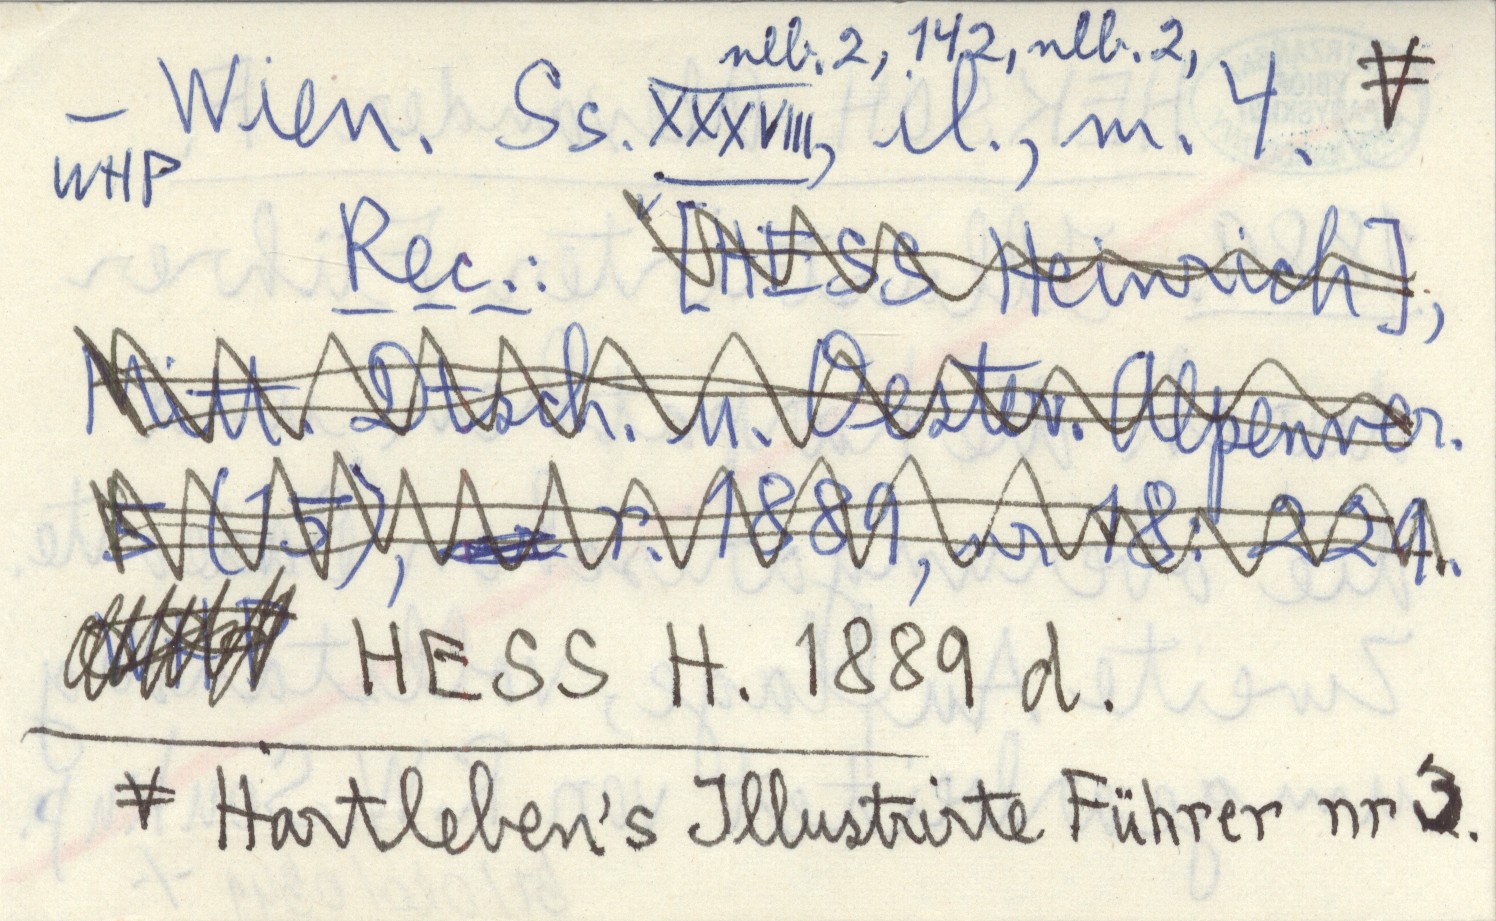 nlb. 2, 142, nlb. 2,
– Wien. Ss. XXXVIII, il., m. 4.
WHP
Rec.: [HESS Heinrich],
Mitt. Dtsch. u. Oester. Alpenver.
5 (15), r. 1889, nr 18: 229.
HESS H. 1889 d.
Hartleben's Illustrirte Führer nr 3.